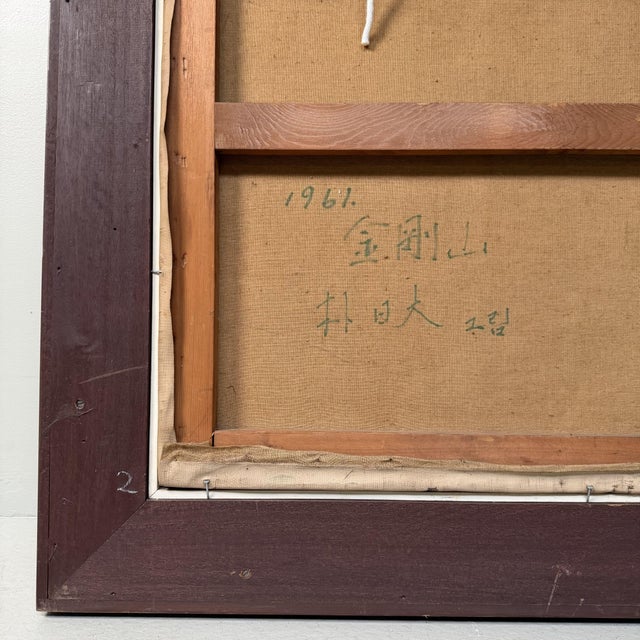 1961.
金剛山
朴日大 그림
2